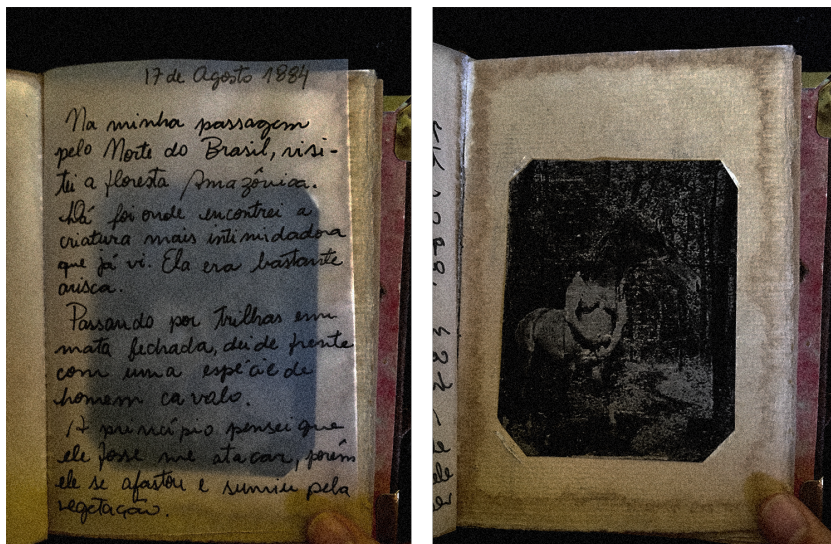 17 de Agosto 1884
Na minha passagem
pelo Norte do Brasil, visi-
tei a floresta Amazônica.
Lá foi onde encontrei a
criatura mais intimidadora
que já vi. Ela era bastante
arisca.
Passando por trilhas em
mata fechada, dei de frente
com uma espécie de
homem cavalo.
A princípio pensei que
ele fosse me atacar, porém
ele se afastou e sumiu pela
vegetação.